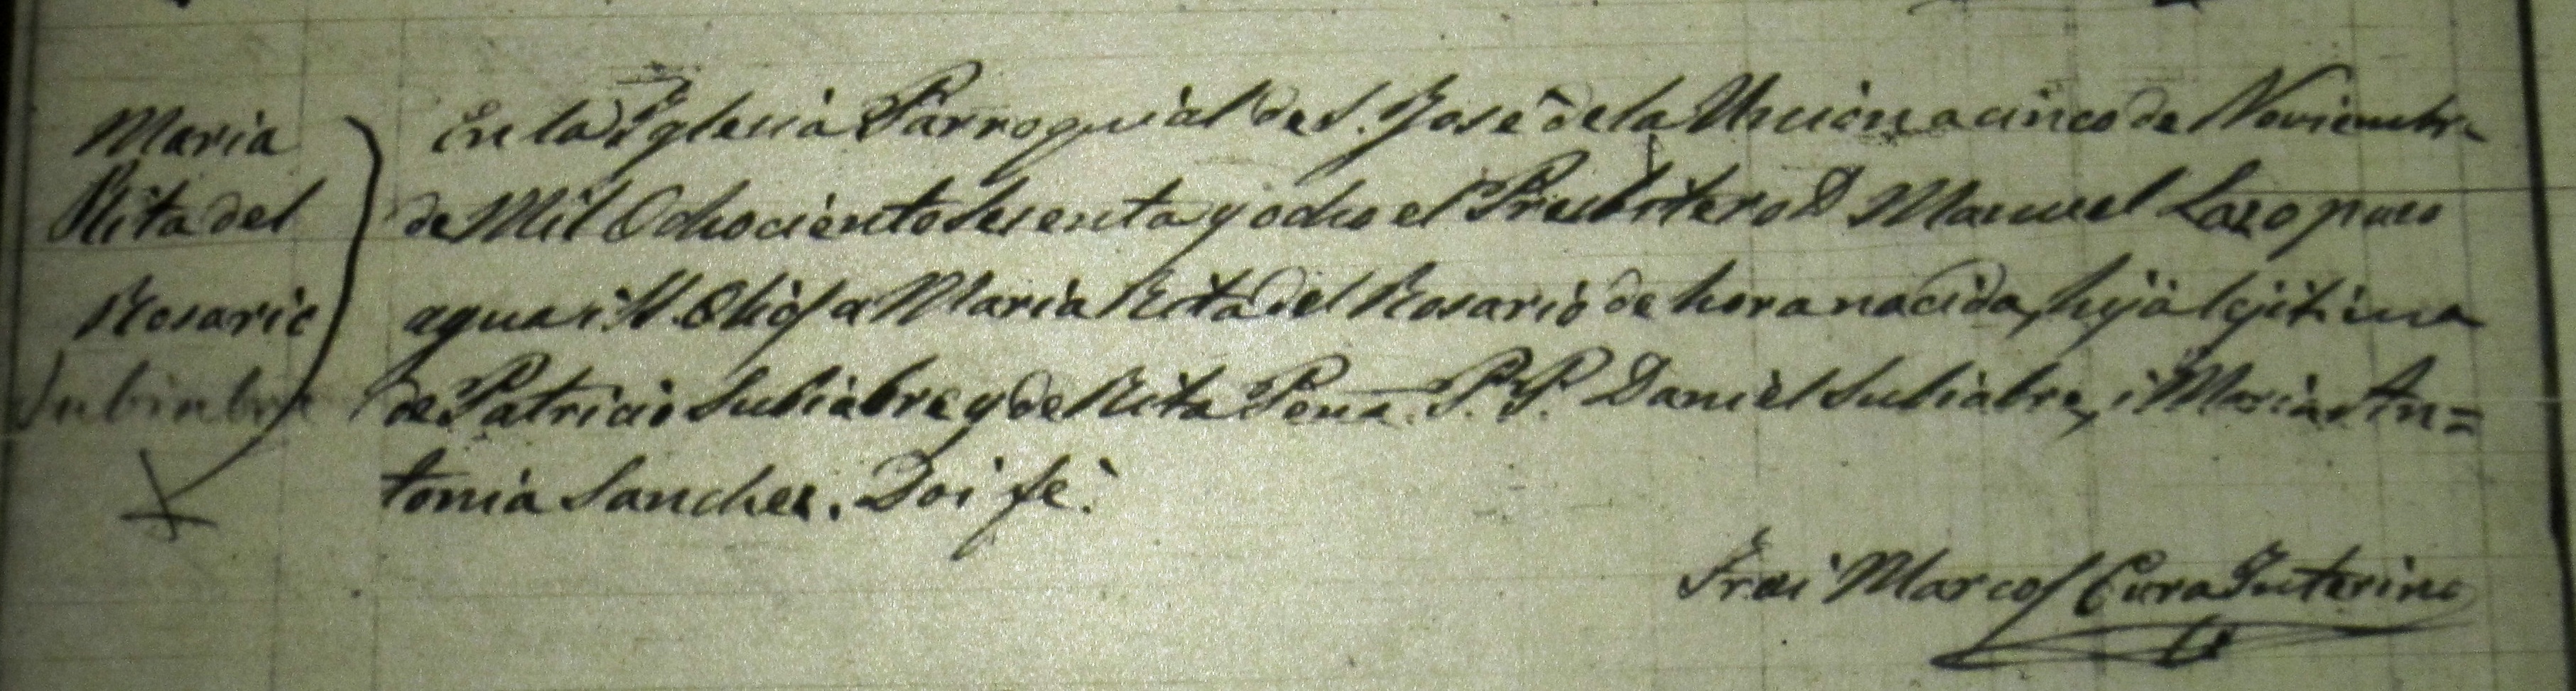 Maria
Rita del
Rosario
Subiabre
En la Yglesia Parroquial de S. José de la Union a cinco de Noviembre
de Mil Ochociento sesenta y ocho el Presbitero D Manuel Lazo puso
agua i S. Oliós a Maria Rita del Rosario de hora nacida, hija lejitima
de Patricio Subiabre y de Rita Pena. P.P. Daniel Subiabre, i Maria An=
tonia Sanchez. Doi fé.
Frai Marcos Cura Interino